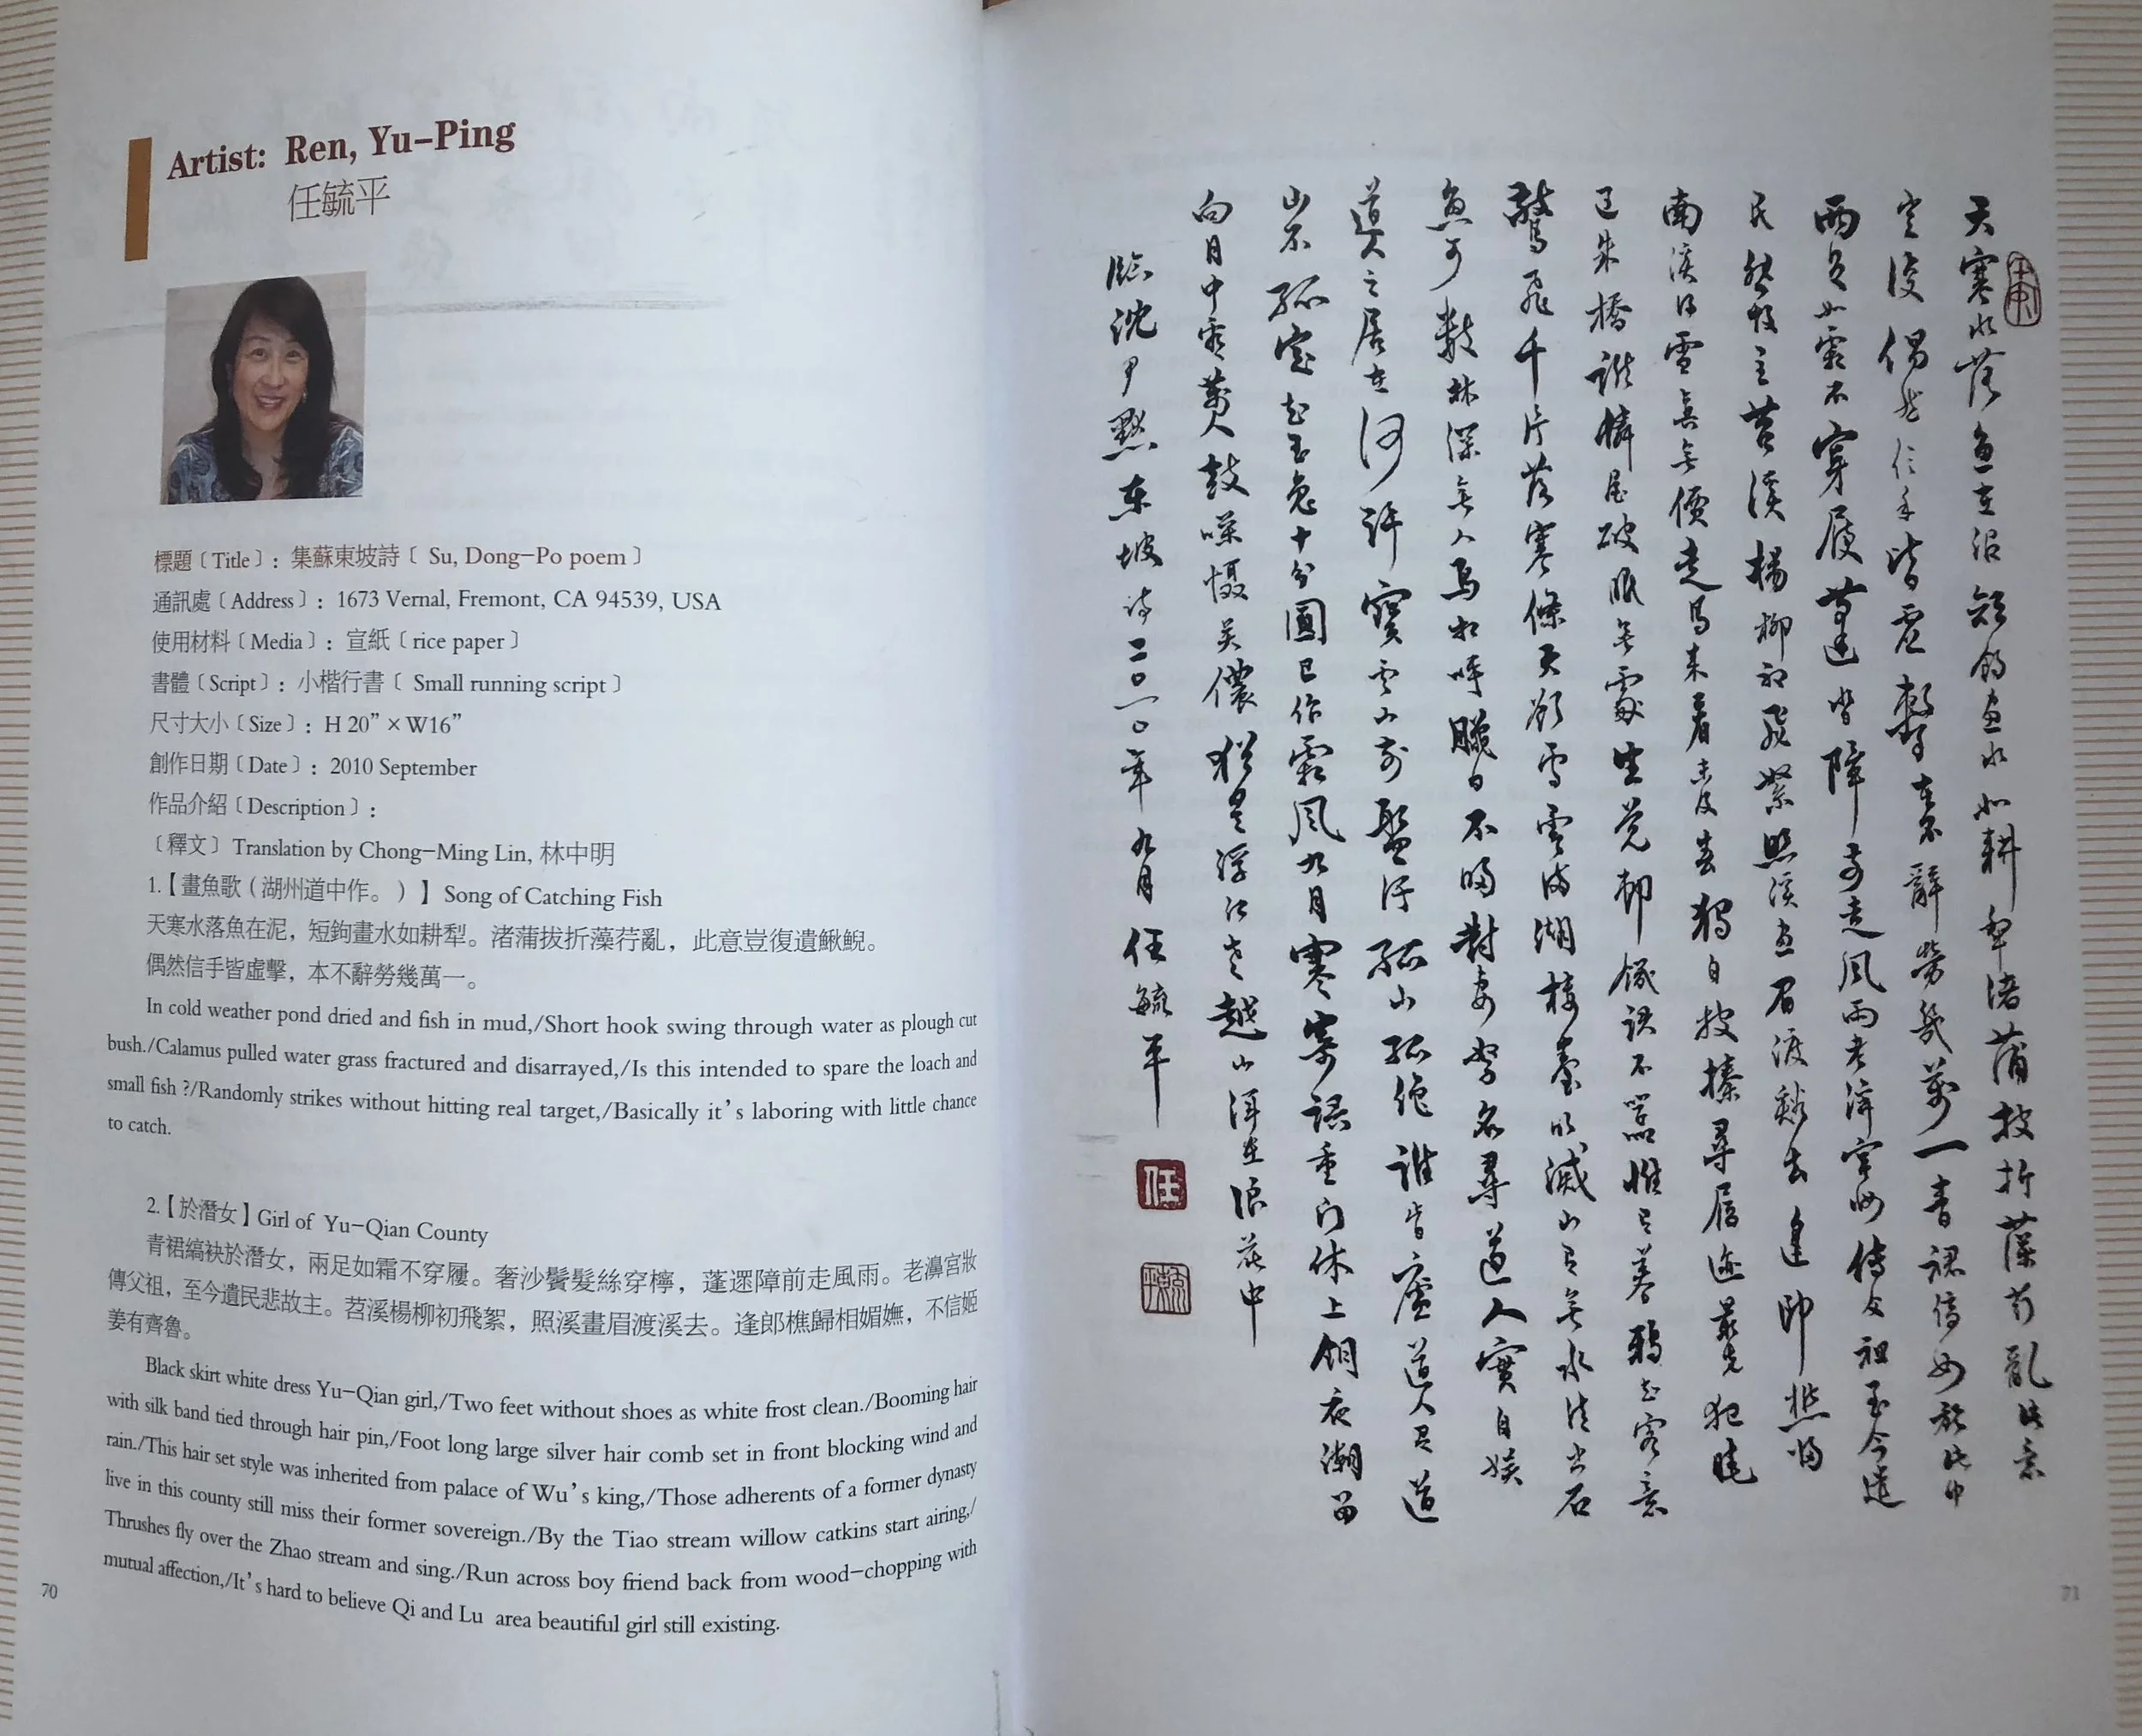 Artist: Ren, Yu-Ping
任毓平
標題〔Title〕：集蘇東坡詩〔 Su, Dong-Po poem 〕
通訊處〔Address〕：1673 Vernal, Fremont, CA 94539, USA
使用材料〔Media〕：宣紙〔rice paper〕
書體〔Script〕：小楷行書〔 Small running script 〕
尺寸大小〔Size〕：H 20” × W16”
創作日期〔Date〕：2010 September
作品介紹〔Description〕：
〔釋文〕Translation by Chong-Ming Lin, 林中明
1.【畫魚歌（湖州道中作。）】Song of Catching Fish
天寒水落魚在泥，短鉤畫水如耕犁。渚蒲拔折藻荇亂，此意豈復遺鰍鯢。
偶然信手皆虛擊，本不辭勞幾萬一。
In cold weather pond dried and fish in mud,/Short hook swing through water as plough cut
bush./Calamus pulled water grass fractured and disarrayed,/Is this intended to spare the loach and
small fish ?/Randomly strikes without hitting real target,/Basically it’s laboring with little chance
to catch.
2.【於潛女】Girl of Yu-Qian County
青裙縞袂於潛女，兩足如霜不穿屨。奢沙鬢髮絲穿檸，蓬遝障前走風雨。老濞宮妝
傳父祖，至今遺民悲故主。苕溪楊柳初飛絮，照溪畫眉渡溪去。逢郎樵歸相媚嫵，不信姬
姜有齊魯。
Black skirt white dress Yu-Qian girl,/Two feet without shoes as white frost clean./Booming hair
with silk band tied through hair pin,/Foot long large silver hair comb set in front blocking wind and
rain./This hair set style was inherited from palace of Wu’s king,/Those adherents of a former dynasty
live in this county still miss their former sovereign./By the Tiao stream willow catkins start airing,/
Thrushes fly over the Zhao stream and sing./Run across boy friend back from wood-chopping with
mutual affection,/It’s hard to believe Qi and Lu area beautiful girl still existing.
70
天寒水落魚在泥短鉤畫水如耕犁渚蒲拔折藻荇亂此意
復偶然信手皆虛擊本不辭勞幾萬一青裙
兩足如霜不穿屨蓬遝障前走風雨老濞宮妝傳父祖至今遺
民悲故主苕溪楊柳初飛絮照溪畫眉渡谿去逢郎樵歸
南溪得雪真無價走馬來看未及獨自披榛尋履跡最先犯曉
過朱橋誰憐屋破眠無處坐覺村饑語不囂惟有暮鴉知客意
驚飛千片落寒條天欲雪雲滿湖樓臺明滅山有無水清出石
魚可數林深無人鳥相呼臘日不歸對妻孥名尋道人實自娛
道人之居在何許寶雲山前盤紆孤山孤絕誰肯廬道人有道
山不孤定知玉兔十分圓已作霜風九月寒寄語重門休上鑰夜潮留
向月中看萬人鼓噪懾吳儂猶是浮江老越山渾在浪花中
臨沈尹默東坡詩二〇一〇年九月任毓平
任
71